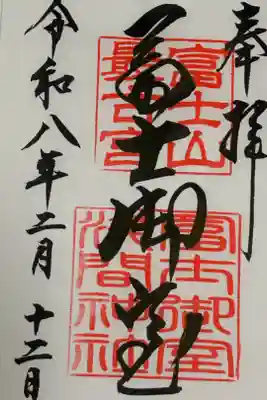 奉拝
富士山
最古宮
冨士御室
冨士御室
浅間神社
令和八年二月十二日